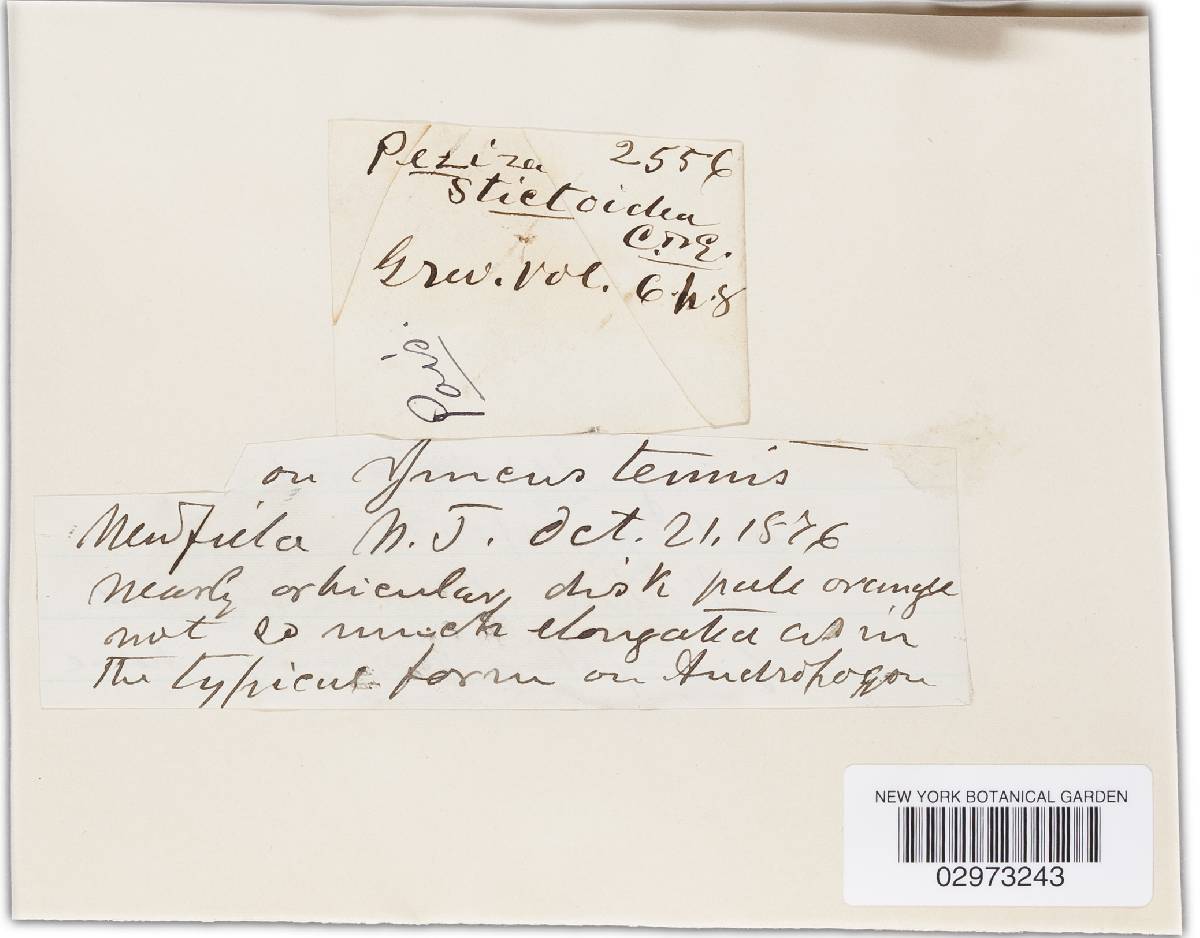 Peziza 2556
Stictoidea
C. & E.
Grev. Vol. 6. p. 8
Par.
on Juncus tenuis
Newfield N. J. Oct. 21, 1876
nearly orbicular, disk pale orange
not so much elongated as in
the typical form on Andropogon
NEW YORK BOTANICAL GARDEN
02973243